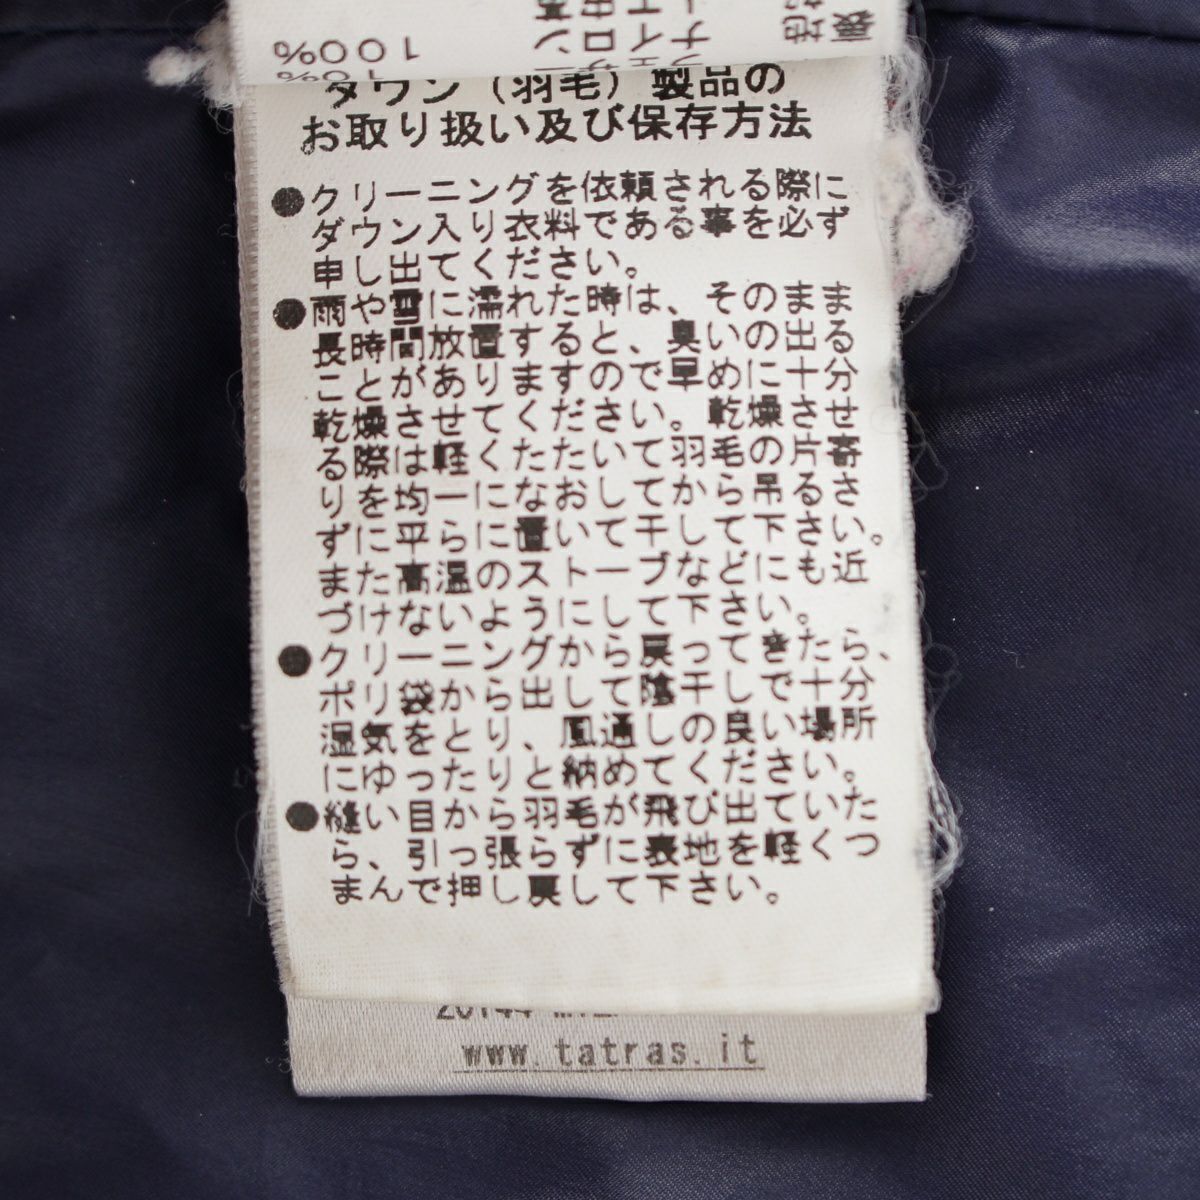 表地
ナイロン 100%
フェザー 10%
ダウン（羽毛）製品の
お取り扱い及び保存方法
●クリーニングを依頼される際に
ダウン入り衣料である事を必ず
申し出てください。
●雨や雪に濡れた時は、そのまま
長時間放置すると、臭いの出る
ことがありますので早めに十分
乾燥させてください。乾燥させ
る際は軽くたたいて羽毛の片寄
りを均一になおしてから吊るさ
ずに平らに置いて干して下さい。
また高温のストーブなどにも近
づけないようにして下さい。
●クリーニングから戻ってきたら、
ポリ袋から出して陰干しで十分
湿気をとり、風通しの良い場所
にゆったりと納めてください。
●縫い目から羽毛が飛び出ていた
ら、引っ張らずに表地を軽くつ
まんで押し戻して下さい。
www.tatras.it